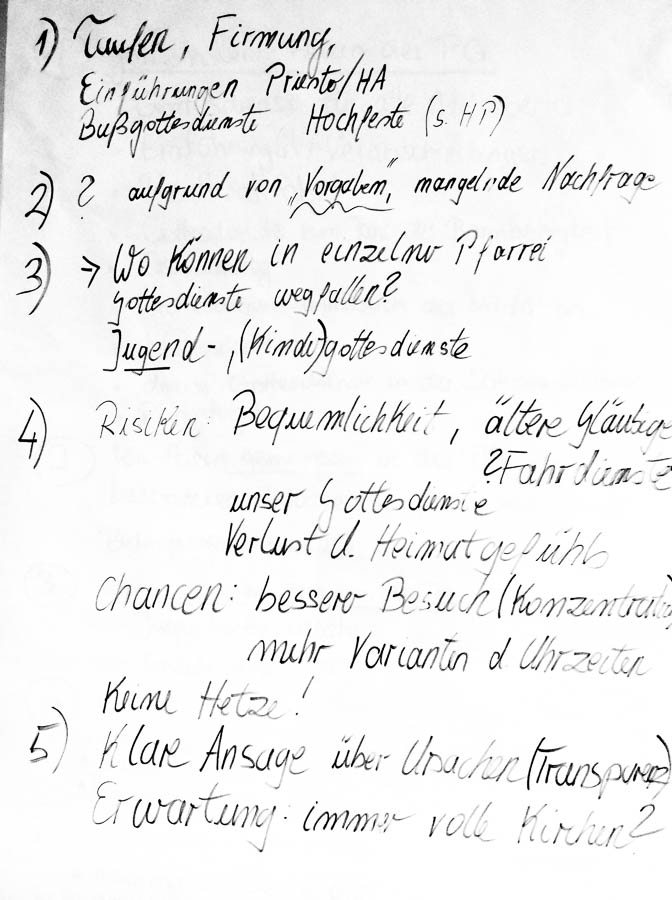 1) Taufen, Firmung,
Einführungen Priester/HA
Bußgottesdienste Hochfeste (s. HP)
2) ? aufgrund von „Vorgaben“, mangelnde Nachfrage
3) → Wo können in einzelner Pfarrei
Gottesdienste wegfallen?
Jugend-, (Kinder)gottesdienste
4) Risiken: Bequemlichkeit, ältere Gläubige
? Fahrdienste
unser Gottesdienste
Verlust d. Heimatgefühls
Chancen: besserer Besuch (Konzentration
mehr Varianten d. Uhrzeiten
Keine Hetze!
5) Klare Ansage über Ursachen (Transparenz)
Erwartung: immer volle Kirchen?